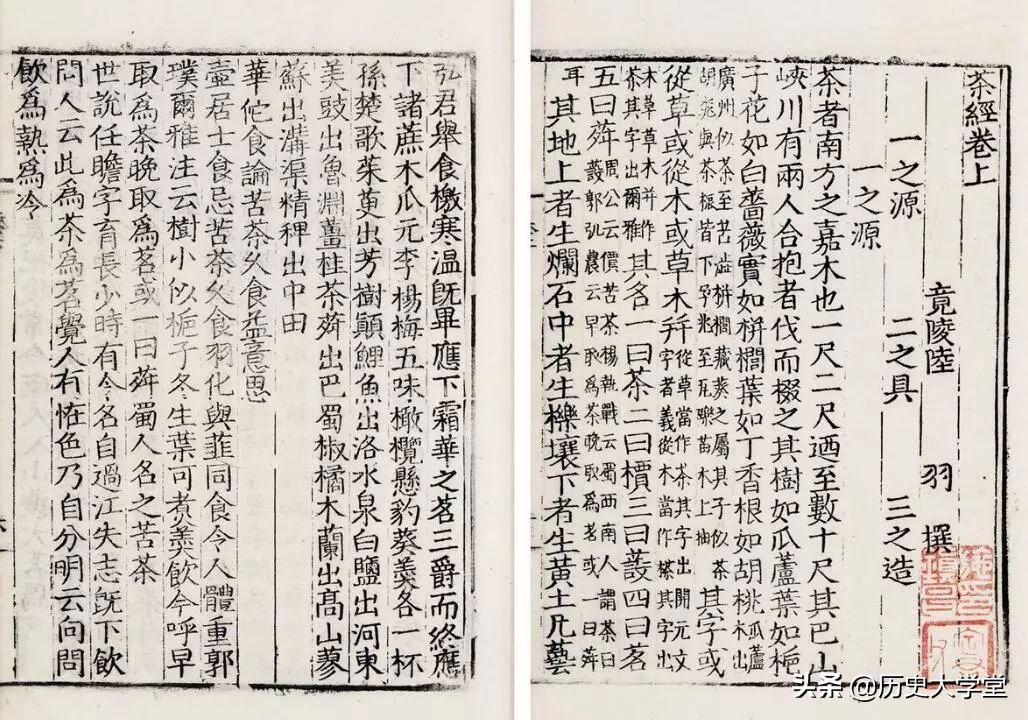 茶經卷上
竟陵陸 羽 撰
一之源 二之具 三之造
一之源
茶者南方之嘉木也一尺二尺廼至數十尺其巴山
峽川有兩人合抱者伐而掇之其樹如瓜蘆葉如梔
子花如白薔薇實如栟櫚葉如丁香根如胡桃瓜蘆木出
廣州似茶至苦澁栟櫚蒲葵之屬其子似茶胡桃與茶根皆下孕兆至瓦礫苗木上抽其字或
從草或從木或草木并從草當作茶其字出開元文字者義從木當作搽其字出
本草草木并作荼其字出爾雅其名一曰茶二曰檟三曰蔎四曰茗
五曰荈周公云檟苦荼楊執戟云蜀西南人謂茶曰蔎郭弘農云早取爲茶晚取爲茗或一曰荈
耳其地上者生爛石中者生櫟壤下者生黃土凡藝
弘君舉食檄寒溫旣畢應下霜華之茗三爵而終應
下諸蔗木瓜元李楊梅五味橄欖懸豹葵羹各一杯
孫楚歌茱萸出芳樹顛鯉魚出洛水泉白鹽出河東
美豉出魯淵薑桂茶荈出巴蜀椒橘木蘭出高山蓼
蘇出溝渠精稗出中田
華佗食論苦茶久食益意思
壺居士食忌苦茶久食羽化與韮同食令人體重郭
璞爾雅注云樹小似梔子冬生葉可煮羹飲今呼早
取爲茶晚取爲茗或一曰荈蜀人名之苦茶
世說任瞻字育長少時有令名自過江失志旣下飲
問人云此爲茶爲茗覺人有怪色乃自分明云向問
飲爲熱爲冷
头条 @历史大学堂